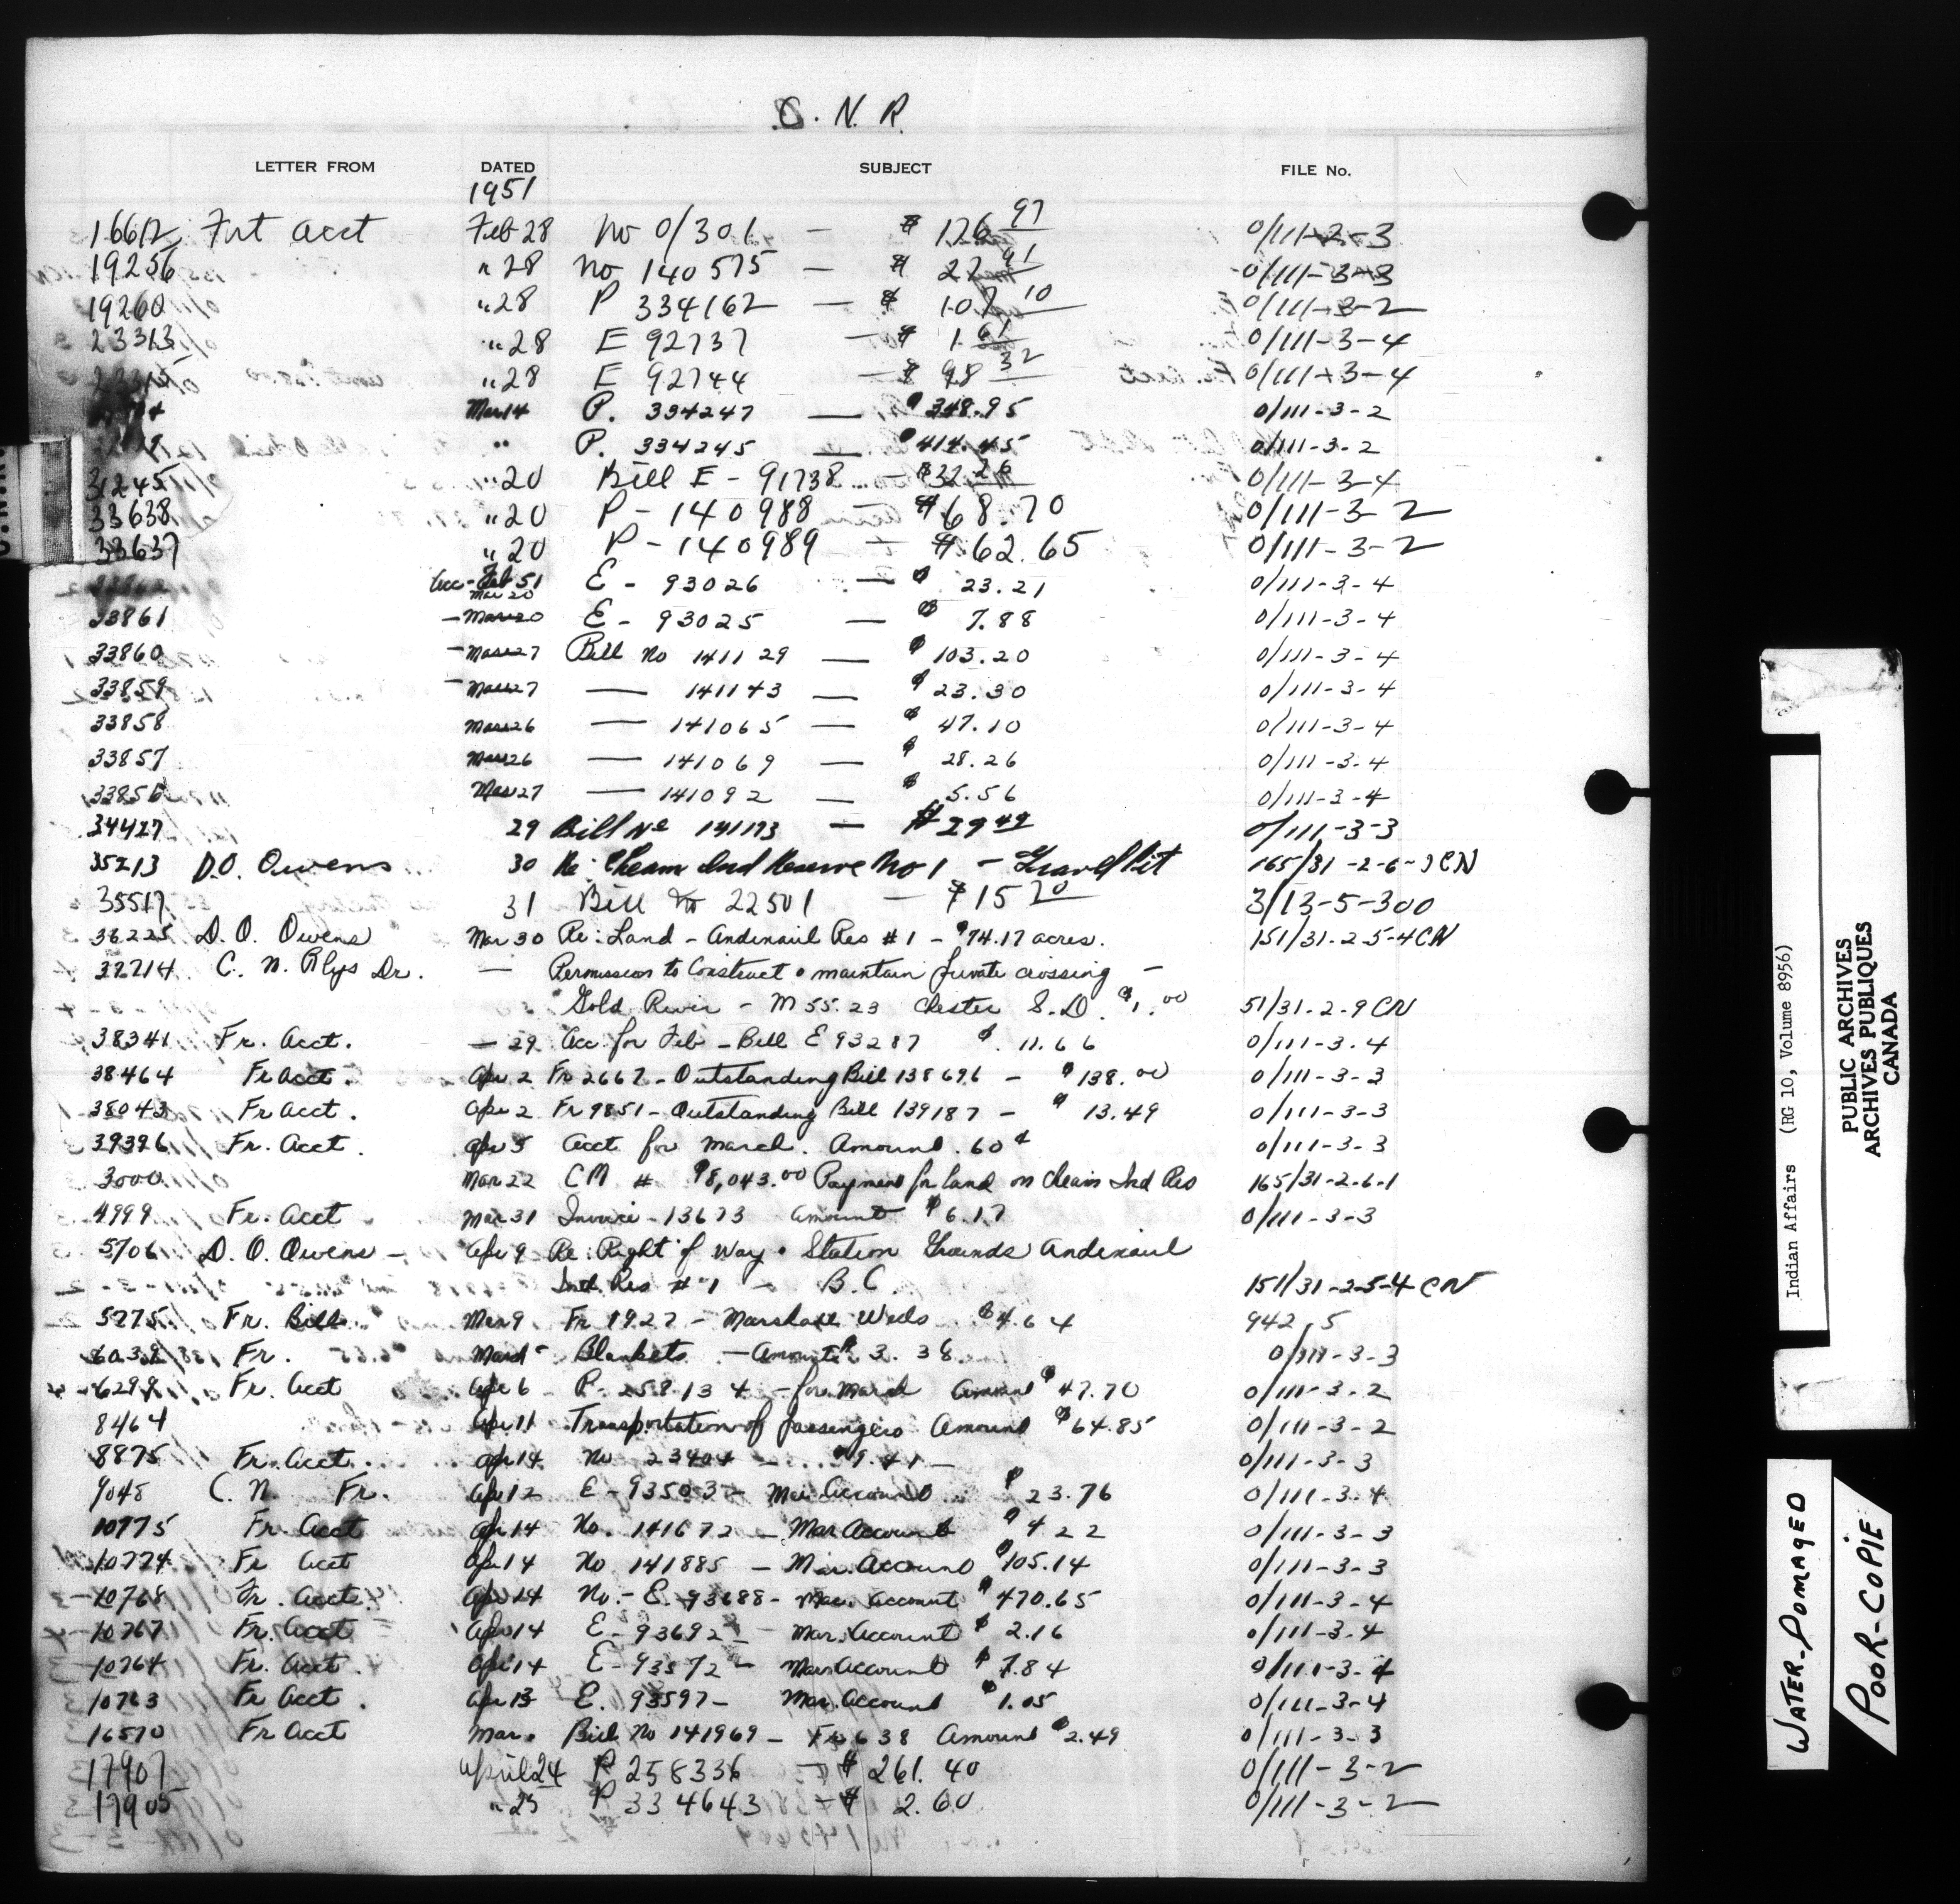 C. N. R.
LETTER FROM DATED SUBJECT FILE No.
1951
16612 Frt acct Feb 28 No 0/301 — $ 126 97 0/111-2-3
19256 " 28 No 140575 — $ 22 91 0/111-3-3
19260 " 28 P 334162 — $ 107 10 0/111-3-2
23313 " 28 E 92737 — $ 1.61 0/111-3-4
23315 " 28 E 92744 — $ 98 32 0/111-3-4
Mar 14 P. 334247 — $348.95 0/111-3-2
" P. 334245 — $414.45 0/111-3-2
31245 " 20 Bill E - 91738 - $32.26 0/111-3-4
33638 " 20 P - 140988 — $68.70 0/111-3-2
33637 " 20 P - 140989 — $62.65 0/111-3-2
Acc - Feb 51 E - 93026 — $ 23.21 0/111-3-4
Mar 20
33861 — Mar 20 E - 93025 — $ 7.88 0/111-3-4
33860 — Mar 27 Bill No 141129 — $ 103.20 0/111-3-4
33859 — Mar 27 — 141143 — $ 23.30 0/111-3-4
33858 Mar 26 — 141065 — $ 47.10 0/111-3-4
33857 Mar 26 — 141069 — $ 28.26 0/111-3-4
33856 Mar 27 — 141092 — $ 5.56 0/111-3-4
34427 29 Bill No 141193 — $29 49 0/111-3-3
35213 D.O. Owens 30 Re: Cheam Ind Reserve No 1 - Gravel Pit 165/31-2-6- CN
35517 31 Bill No 22501 — $15 70 3/13-5-300
36225 D. O. Owens Mar 30 Re: Land - Andimaul Res #1 - 74.17 acres. 151/31-2-5-4 CN
32214 C. N. Rlys Dr. — Permission to Construct & maintain private crossing —
Gold River - M 55.23 Chester S.D. $1.00 51/31-2-9 CN
38341 Fr. Acct. — 29 Acc for Feb - Bill E 93287 $ 11.66 0/111-3-4
38464 Fr Acct. Apr 2 Fr 2667 - Outstanding Bill 138696 - $138.00 0/111-3-3
38043 Fr Acct. Apr 2 Fr 9851 - Outstanding Bill 139187 - $ 13.49 0/111-3-3
39396 Fr. Acct. Apr 5 Acct for March. Amount .60¢ 0/111-3-3
3000 Mar 22 CM # $8,043.00 Payment for land on Cheam Ind Res 165/31-2-6-1
4999 Fr. Acct Mar 31 Invoice - 13673 Amount $6.17 0/111-3-3
5706 D. O. Owens - Apr 9 Re: Right of Way & Station Grounds Andimaul
Ind Res #1 - B.C. 151/31-2-5-4 CN
5775 Fr. Bill Mar 9 Fr 1927 - Marshall Wells $4.64 942-5
6032 Fr. Mar 5 Blankets - Amount $3.38 0/111-3-3
6299 Fr. Acct Apr 6 P- 258134 - for March Amount $47.70 0/111-3-2
8464 Apr 11 Transportation of passengers Amount $64.85 0/111-3-2
8875 Fr. Acct. Apr 14 No 23404 - $9.41 - 0/111-3-3
9048 C. N. Fr. Apr 12 E-93503 - Mar Account $23.76 0/111-3-4
10775 Fr. Acct Apr 14 No. 141672 - Mar Account $4 22 0/111-3-3
10774 Fr Acct Apr 14 No 141885 - Mar. Account $105.14 0/111-3-3
10768 Fr. Acct. Apr 14 No.- E 93688 - Mar. Account $470.65 0/111-3-4
10767 Fr. Acct Apr 14 E-93692 - Mar. Account $2.16 0/111-3-4
10764 Fr. Acct. Apr 14 E-93572 - Mar Account $7.84 0/111-3-4
10763 Fr Acct. Apr 13 E. 93597 - Mar. Account $1.05 0/111-3-4
16570 Fr Acct Mar. Bill No 141969 - Fr 638 Amount $2.49 0/111-3-3
17907 April 24 P 258336 - $ 261.40 0/111-3-2
17905 " 25 P 334643 - $ 2.60 0/111-3-2
Indian Affairs (RG 10, Volume 8956)
PUBLIC ARCHIVES
ARCHIVES PUBLIQUES
CANADA
WATER-DOMAGED
POOR-COPIE